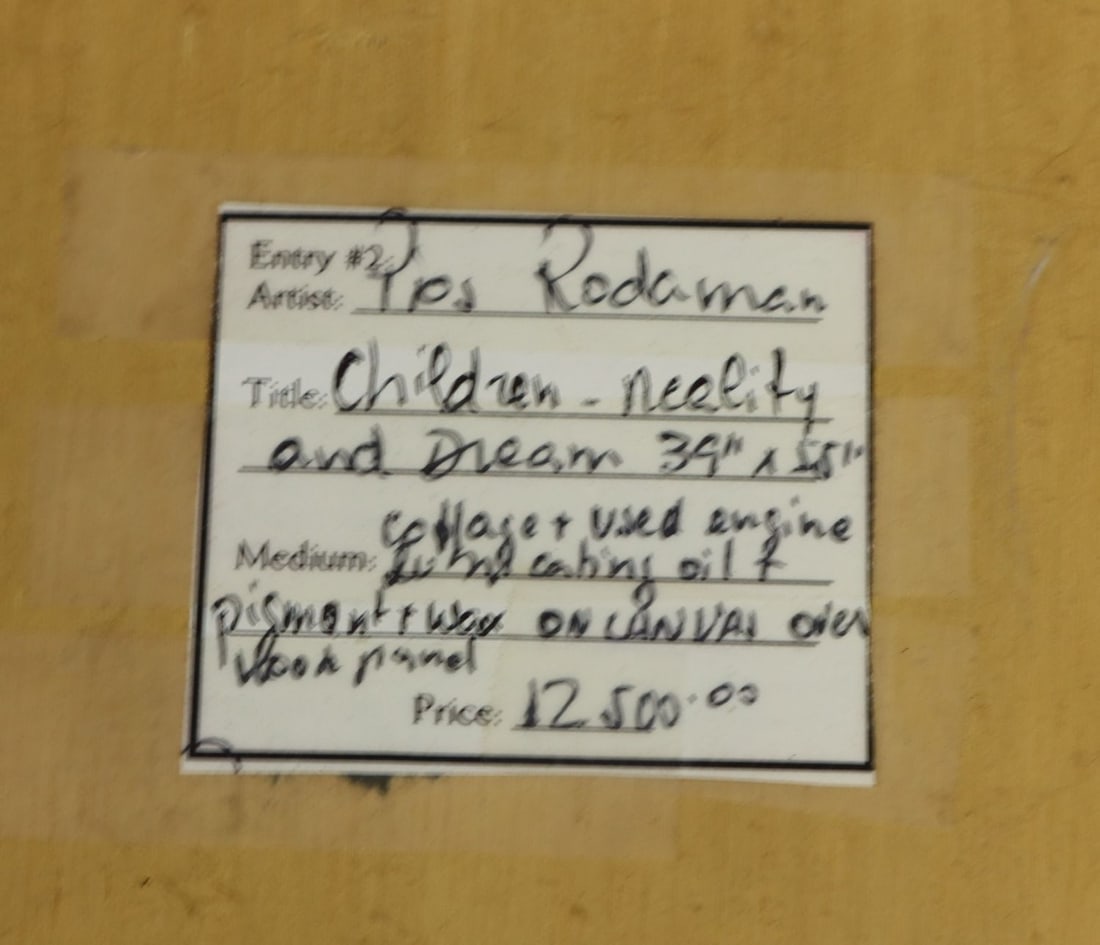 Entry #2:
Artist: Pips Rodaman
Title: Children - Reality
and Dream 39" x 55"
collage + used engine
Medium: lubricating oil +
pigment + wax ON CANVAS over
wood panel
Price: 12 500.00